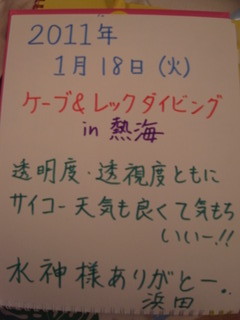 2011年
1月18日(火)
ケーブ&レックダイビング
in 熱海
透明度・透視度ともに
サイコー天気も良くて気もち
いいー!!
水神様ありがとー。
浜田